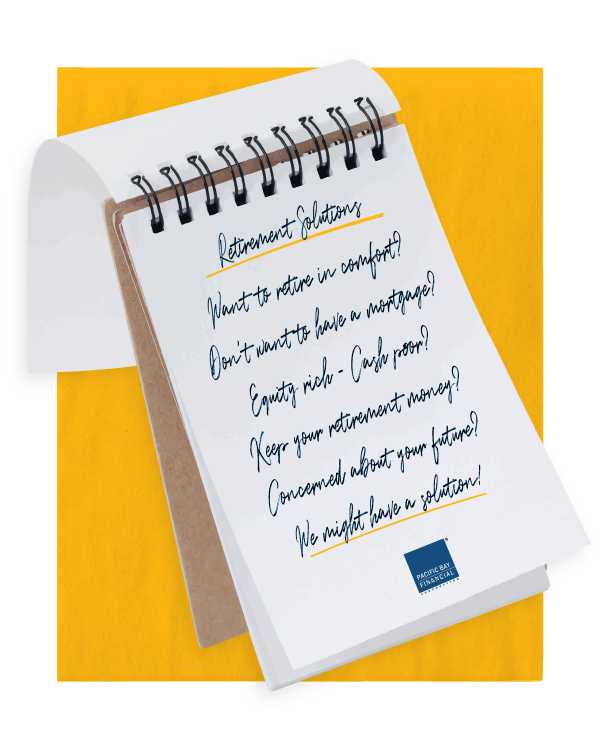 Retirement Solutions
Want to retire in comfort?
Don't want to have a mortgage?
Equity rich - Cash poor?
Keep your retirement money?
Concerned about your future?
We might have a solution!
PACIFIC BAY
FINANCIAL